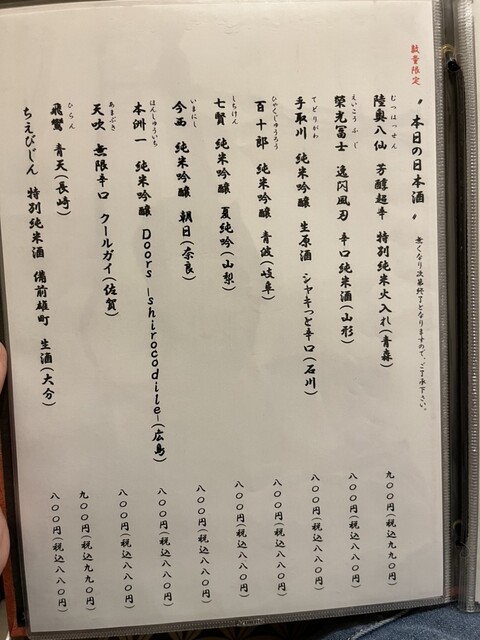 数量限定
〝本日の日本酒〟 無くなり次第終了となりますので、ご了承下さい。
むつはっせん
陸奥八仙 芳醇超辛 特別純米火入れ(青森) 九〇〇円(税込九九〇円)
えいこうふじ
榮光冨士 逸閃風刃 辛口純米酒(山形) 八〇〇円(税込八八〇円)
てどりがわ
手取川 純米吟醸 生原酒 シャキっと辛口(石川) 八〇〇円(税込八八〇円)
ひゃくじゅうろう
百十郎 純米吟醸 青波(岐阜) 八〇〇円(税込八八〇円)
しちけん
七賢 純米吟醸 夏純吟(山梨) 八〇〇円(税込八八〇円)
いまにし
今西 純米吟醸 朝日(奈良) 八〇〇円(税込八八〇円)
ほんしゅういち
本洲一 純米吟醸 Doors -shirocodile-(広島) 八〇〇円(税込八八〇円)
あまぶき
天吹 無限辛口 クールガイ(佐賀) 八〇〇円(税込八八〇円)
ひらん
飛鸞 青天(長崎) 九〇〇円(税込九九〇円)
ちえびじん 特別純米酒 備前雄町 生酒(大分) 八〇〇円(税込八八〇円)